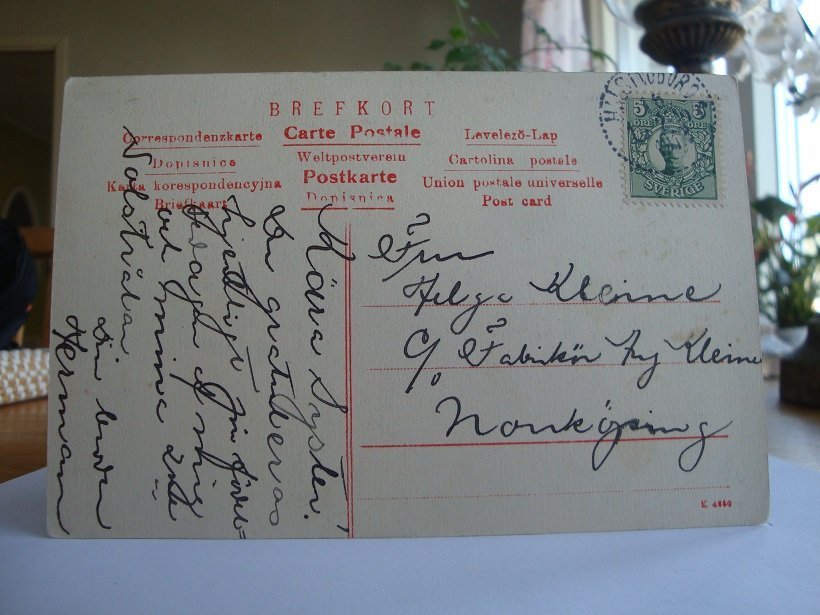 BREFKORT
Correspondenzkarte
Carte Postale
Levelező-Lap
Dopisnice
Weltpostverein
Cartolina postale
Karta korespondencyjna
Postkarte
Union postale universelle
Briefkaart
Dopisnica
Post card
5 5
ÖRE ÖRE
SVERIGE
Kära Syster!
Du gratuleras
hjertligt
af mig
och mina
Din broder
Herman
Fru
Helga Kleine
c/o Fabrikör Kleine
Norrköping